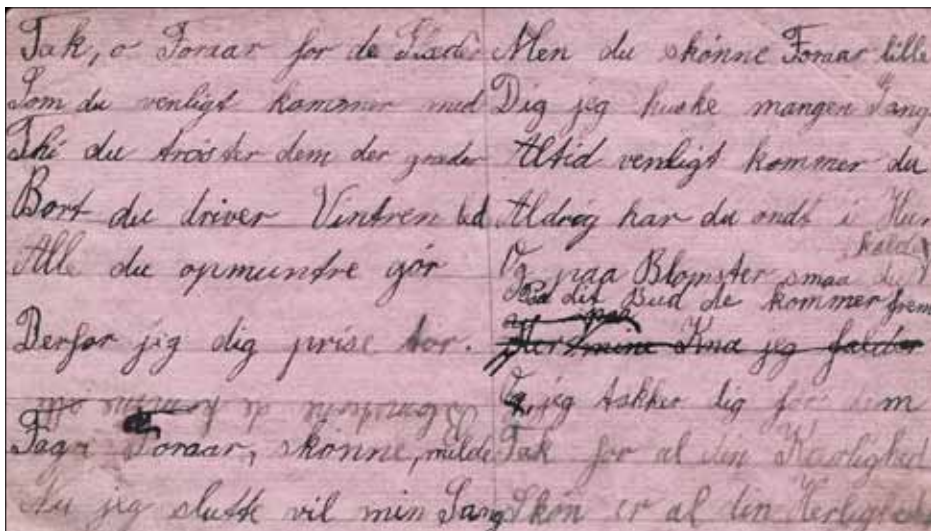 Tak, o Foraar for de Glæder
Som du venligt kommer med
Thi du trøster dem der græder
Bort du driver Vintren led
Alle du opmuntre gør
Derfor jeg dig prise tør.
Blomsterne de komme
Fagre Foraar, skønne, milde
Nu jeg slutte vil min Sang
Men du skønne Foraar lille
Dig jeg huske mangen Gang
Altid venligt kommer du
Aldrig har du ondt i Hu
Og paa Blomster smaa du kalder
Paa dit Bud de kommer frem
mine Knæ jeg falder
Og jeg takker dig for dem
Tak for al din Kærlighed
Skøn er al din Herlighed